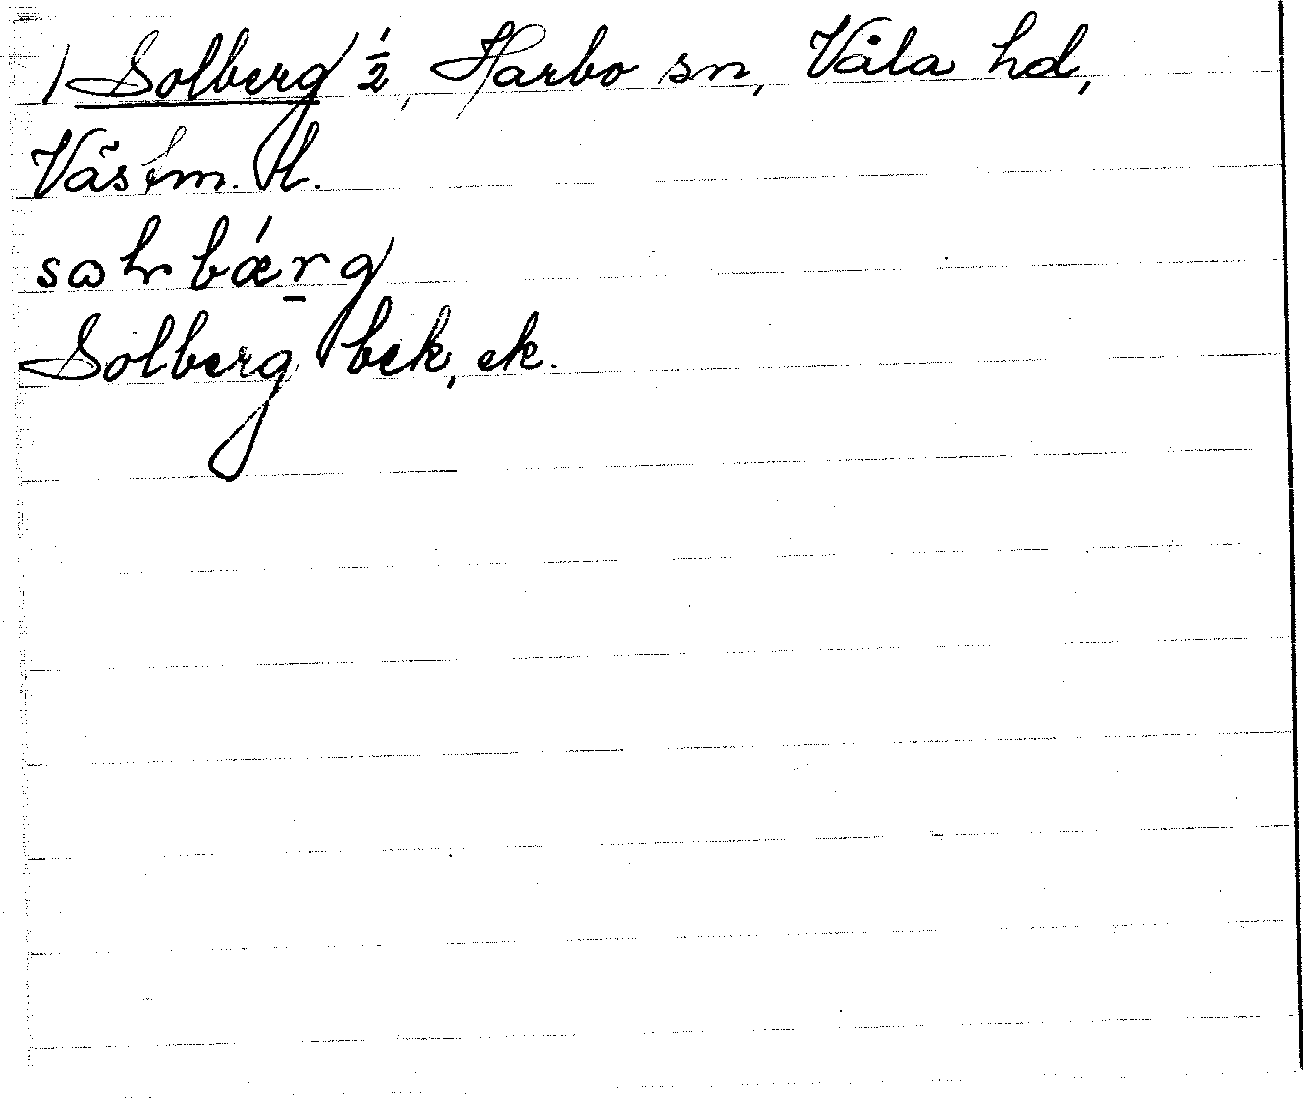 1 Solberg ½, Harbo sn, Våla hd,
Västm. l.
Solberg bek, ek.